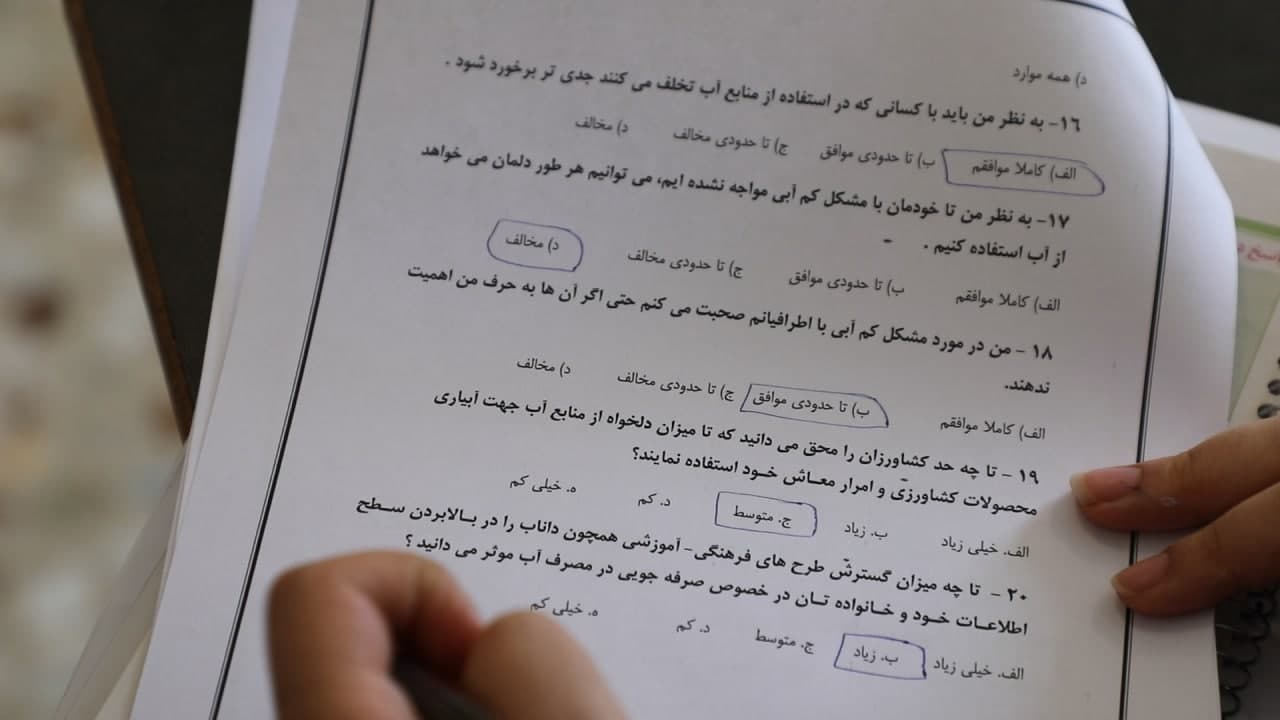 د) همه موارد
۱۶- به نظر من باید با کسانی که در استفاده از منابع آب تخلف می کنند جدی تر برخورد شود .
الف) کاملا موافقم ب) تا حدودی موافق ج) تا حدودی مخالف د) مخالف
۱۷- به نظر من تا خودمان با مشکل کم آبی مواجه نشده ایم، می توانیم هر طور دلمان می خواهد
از آب استفاده کنیم .
الف) کاملا موافقم ب) تا حدودی موافق ج) تا حدودی مخالف د) مخالف
۱۸ - من در مورد مشکل کم آبی با اطرافیانم صحبت می کنم حتی اگر آن ها به حرف من اهمیت
ندهند.
الف) کاملا موافقم ب) تا حدودی موافق ج) تا حدودی مخالف د) مخالف
۱۹ - تا چه حد کشاورزان را محق می دانید که تا میزان دلخواه از منابع آب جهت آبیاری
محصولات کشاورزی و امرار معاش خود استفاده نمایند؟
الف. خیلی زیاد ب. زیاد ج. متوسط د. کم ه. خیلی کم
۲۰ - تا چه میزان گسترش طرح های فرهنگی- آموزشی همچون داناب را در بالابردن سطح
اطلاعات خود و خانواده تان در خصوص صرفه جویی در مصرف آب موثر می دانید ؟
الف. خیلی زیاد ب. زیاد ج. متوسط د. کم ه. خیلی کم